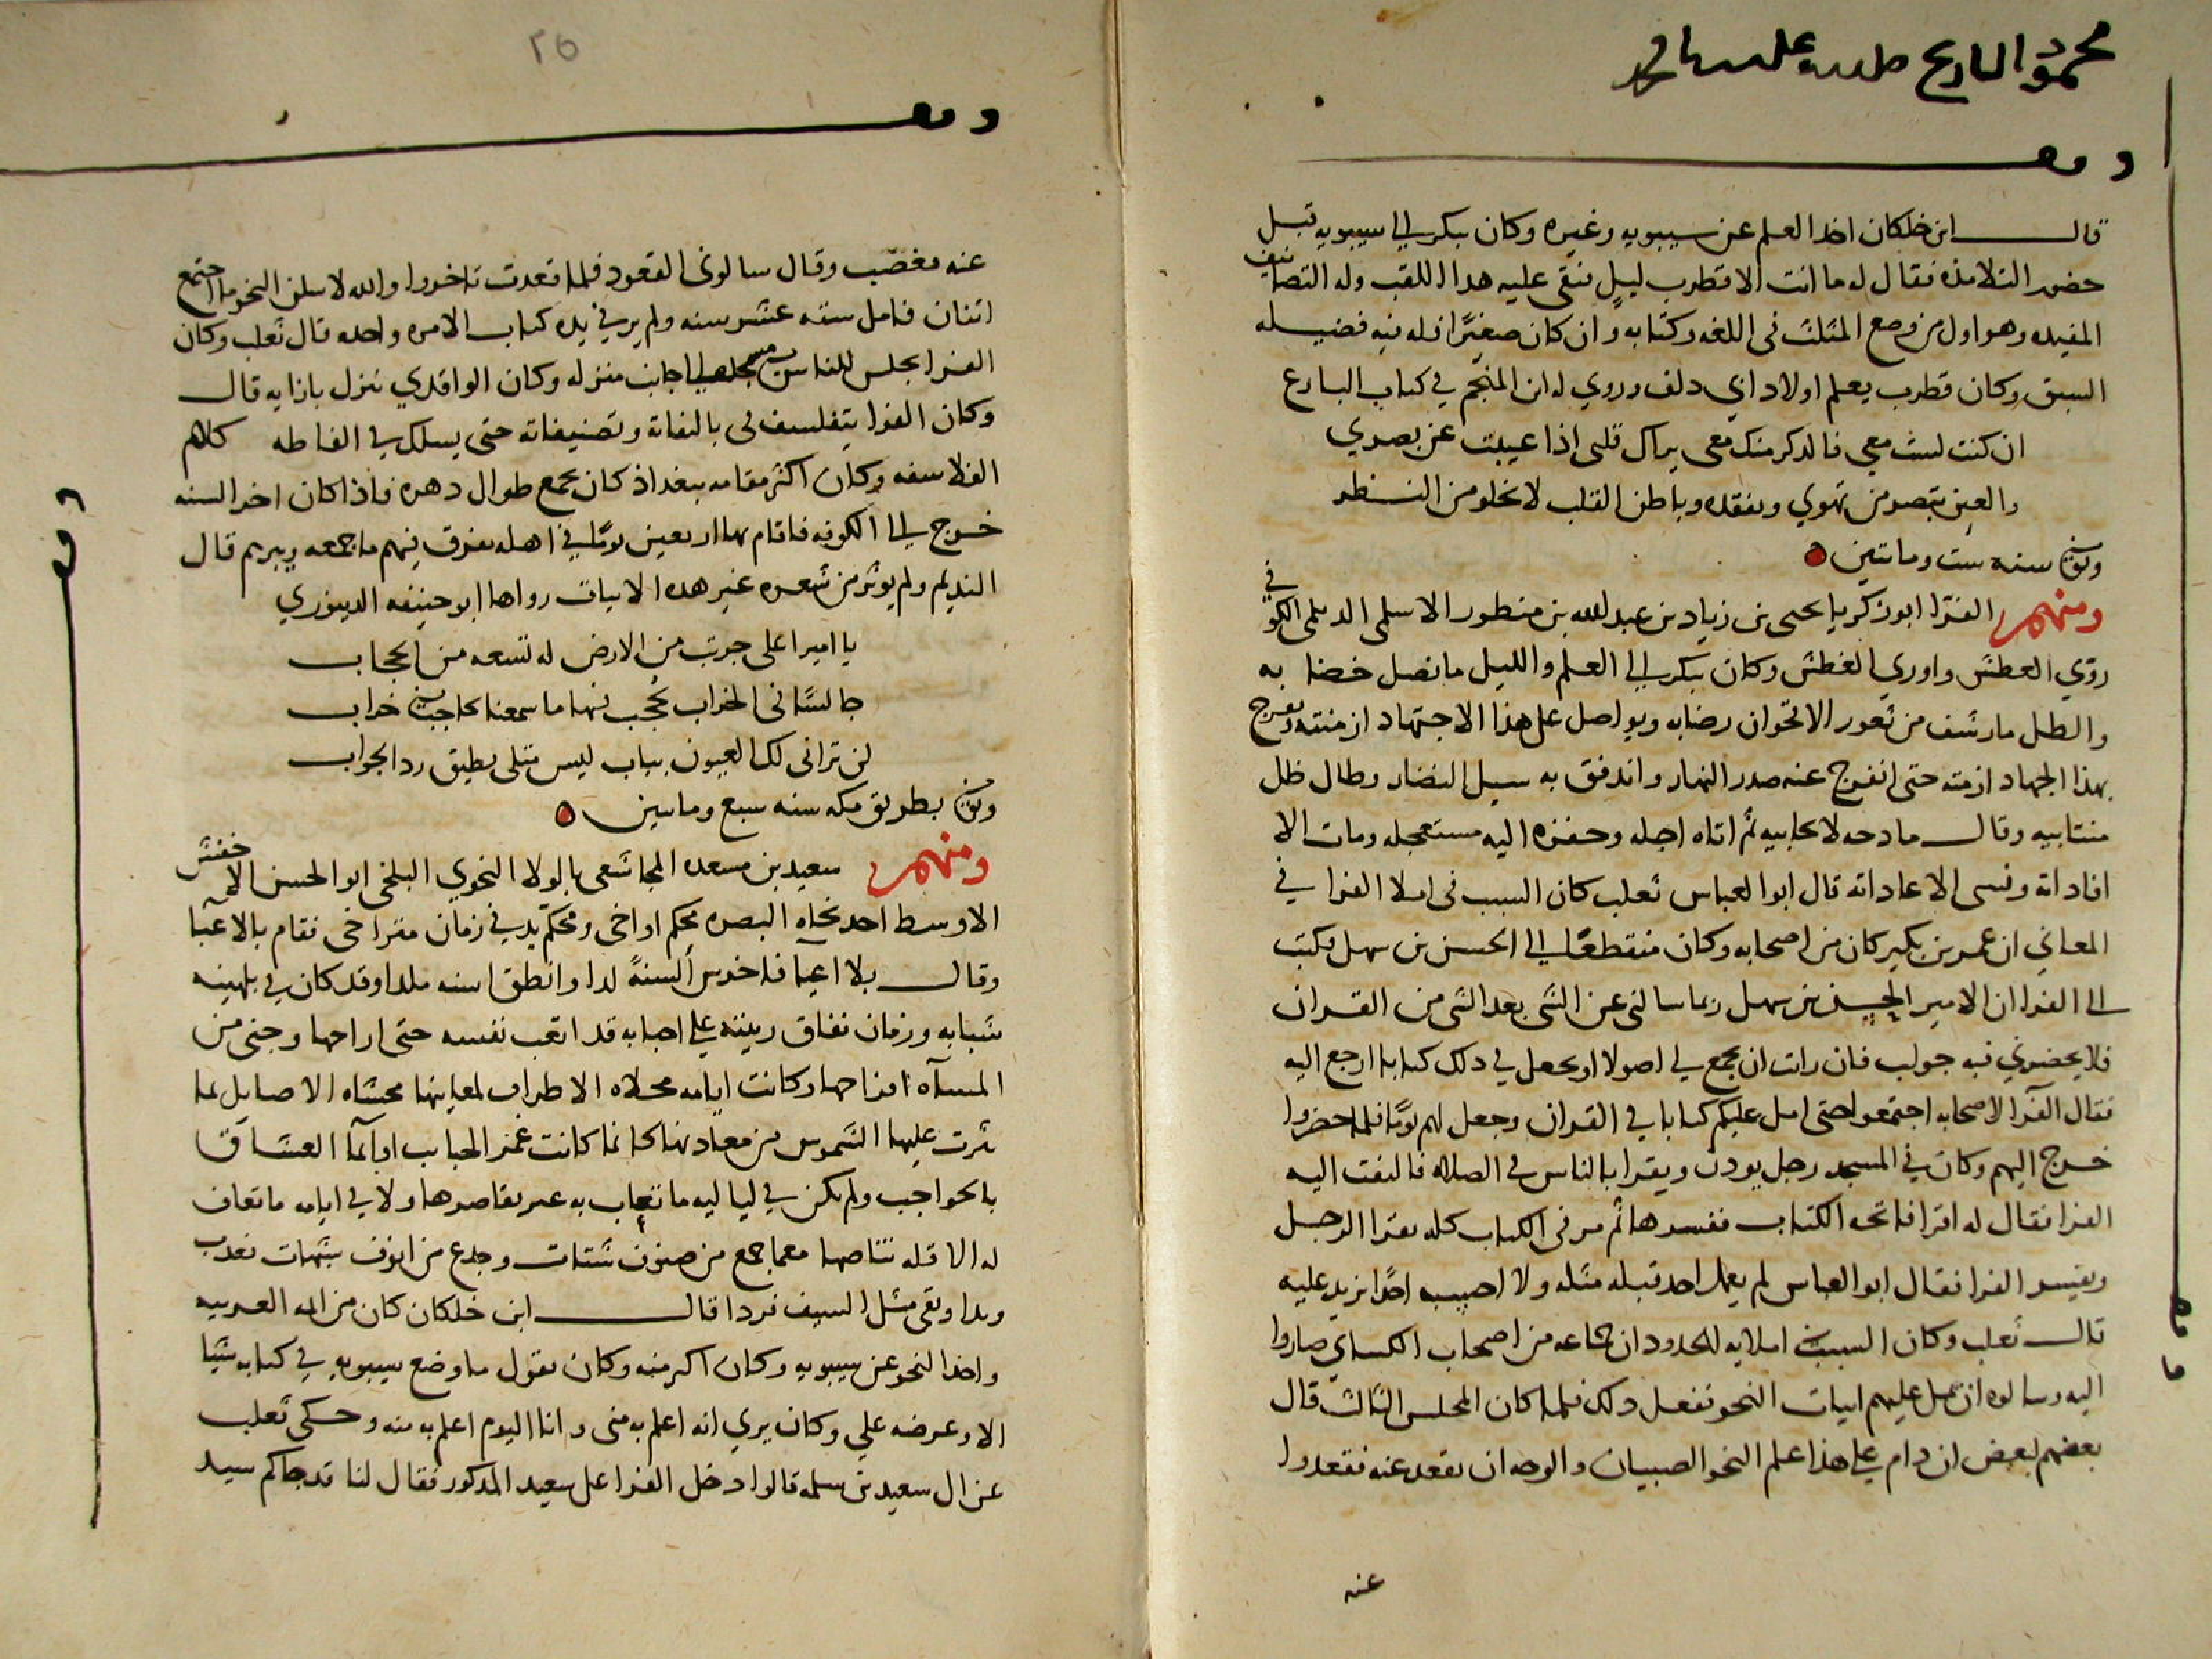 محمود
وقف
قال ابن خلكان اخذ العلم عن سيبويه وغيره وكان يبكر الى سيبويه قبل
حضور التلامذه فقال له ما انت الا قطرب ليل فبقى عليه هدا اللقب وله التصانيف
المفيده وهو اول من وضع المثلث فى اللغه وكتابه وان كان صغيرًا فله فيه فضيله
السبق وكان قطرب يعلم اولاد ابي دلف وروي له ابن المنجم في كتاب البارع
ان كنت لست معي فالدكر منك معى يراك قلبى اذا غيبت عن بصري
والعين تبصر من تهوي وتفقده وباطن القلب لا يخلو من النظر
وتوفى سنه ست ومائتين
ومنهم الفرا ابو زكريا يحيى بن زياد بن عبد الله بن منظور الاسلمى الديلمى الكوفي
روّي العطش واوري الغطش وكان يبكر الى العلم والليل ما نصل خضابه
والطل ما رشف من ثغور الاقحوان رضابه ويواصل على هذا الاجتهاد ازمنته ويعرج
بهذا الجهاد ازمته حتى انفرج عنه صدر النهار واندفق به سيل النضار وطال ظل
منتابيه وقال مادحه لا يحابيه ثم اتاه اجله وحفزه اليه مستعجله ومات الا
افاداته ونسى الا عاداته قال ابو العباس ثعلب كان السبب فى املا الفرا في
المعاني ان عمر بن بكير كان من اصحابه وكان منقطعًا الى الحسن بن سهل فكتب
الى الفرا ان الامير الحسن بن سهل ربما سالنى عن الشى بعد الشى من القران
فلا يحضرني فيه جواب فان رات ان تجمع لي اصولا او تجعل في دلك كتابا ارجع اليه
فقال الفرا لاصحابه اجتمعوا حتى امل عليكم كتابا في القران وجعل لهم يومًا فلما حضروا
خرج اليهم وكان في المسجد رجل يودن ويقرا بالناس فى الصلاه فالتفت اليه
الفرا فقال له اقرا فاتحه الكتاب ففسرها ثم مر فى الكتاب كله يقرا الرجل
ويفسر الفرا فقال ابو العباس لم يعمل احد قبله مثله ولا احسب احدًا يزيد عليه
قال ثعلب وكان السبب فى املايه الحدود ان جماعه من اصحاب الكساي صاروا
اليه وسالوه ان يمل عليهم ابيات النحو ففعل دلك فلما كان المجلس الثالث قال
بعضهم لبعض ان دام على هذا علم النحو الصبيان والوجه ان يقعد عنه فقعدوا
عنه
٢٥
وقف
عنه فغضب وقال سالونى القعود فلما قعدت تاخروا والله لاملن النحو ما اجتمع
اثنان فامل سته عشر سنه ولم ير في يده كتاب الا مره واحده قال ثعلب وكان
الفرا يجلس للناس فى مسجده الى جانب منزله وكان الواقدي ينزل بازايه قال
وكان الفرا يتفلسف فى تاليفاته وتصنيفاته حتى يسلك في الفاظه كلام
الفلاسفه وكان اكثر مقامه ببغداذ كان يجمع طوال دهره فاذا كان اخر السنه
خرج الى الكوفه فاقام بها اربعين يومًا في اهله يفرق فيهم ما جمعه ويبرهم قال
النديم ولم يوثر من شعره غير هده الابيات رواها ابو حنيفه الدينوري
يا اميرا على جريب من الارض له تسعه من الحجاب
جالسًا فى الخراب يحجب فيها ما سمعنا بحاجب فى خراب
لن ترانى لك العيون بباب ليس مثلى يطيق رد الجواب
وتوفى بطريق مكه سنه سبع ومايتين
ومنهم سعيد بن مسعده المجاشعى بالولا النحوي البلخى ابو الحسن الاخفش
الاوسط احد نحاه البصره محكم اواخى ومحكم يد في زمان متراخى فقام بالاعبا
وقال بلا اعيا فاخرس السنةً لدا وانطق وقد كان في بلهنيه
شبابه وزمان على احبابه قد اتعب نفسه حتى اراحها وجنى من
المساه افراحها وكانت ايامه محلاه الاطراف محشاه الاصايل بما
نثرت عليها الشموس من معادنها كانما كانت غمز الحبايب او ايما العشاق
بالحواجب ولم يكن في لياليه ما تعاب به غير تقاصرها ولا في ايامه ما تعاف
له الا قله تناصها جمع من صنوف شتات وجدع من انوف شبهات
وبقى مثل السيف فردا قال ابن خلكان كان من ايمه العربيه
واخذ النحو عن سيبويه وكان اكبر منه وكان يقول ما وضع سيبويه في كتابه شيًا
الا وعرضه علي وكان يري انه اعلم به منى وانا اليوم اعلم به منه وحكى ثعلب
عن ال سعيد بن سلمه قالوا دخل الفرا على سعيد المدكور فقال لنا قد جاكم سيد
وقف